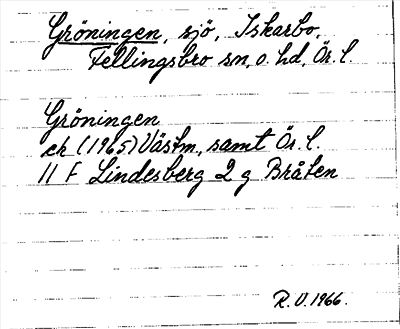 Gröningen, sjö, Iskarbo,
Fellingsbro sn, o. hd, Ör. l.
Gröningen
ek (1965) Västm., samt Ör. l.
11 F Lindesberg 2 g Bråten
R.V. 1966.